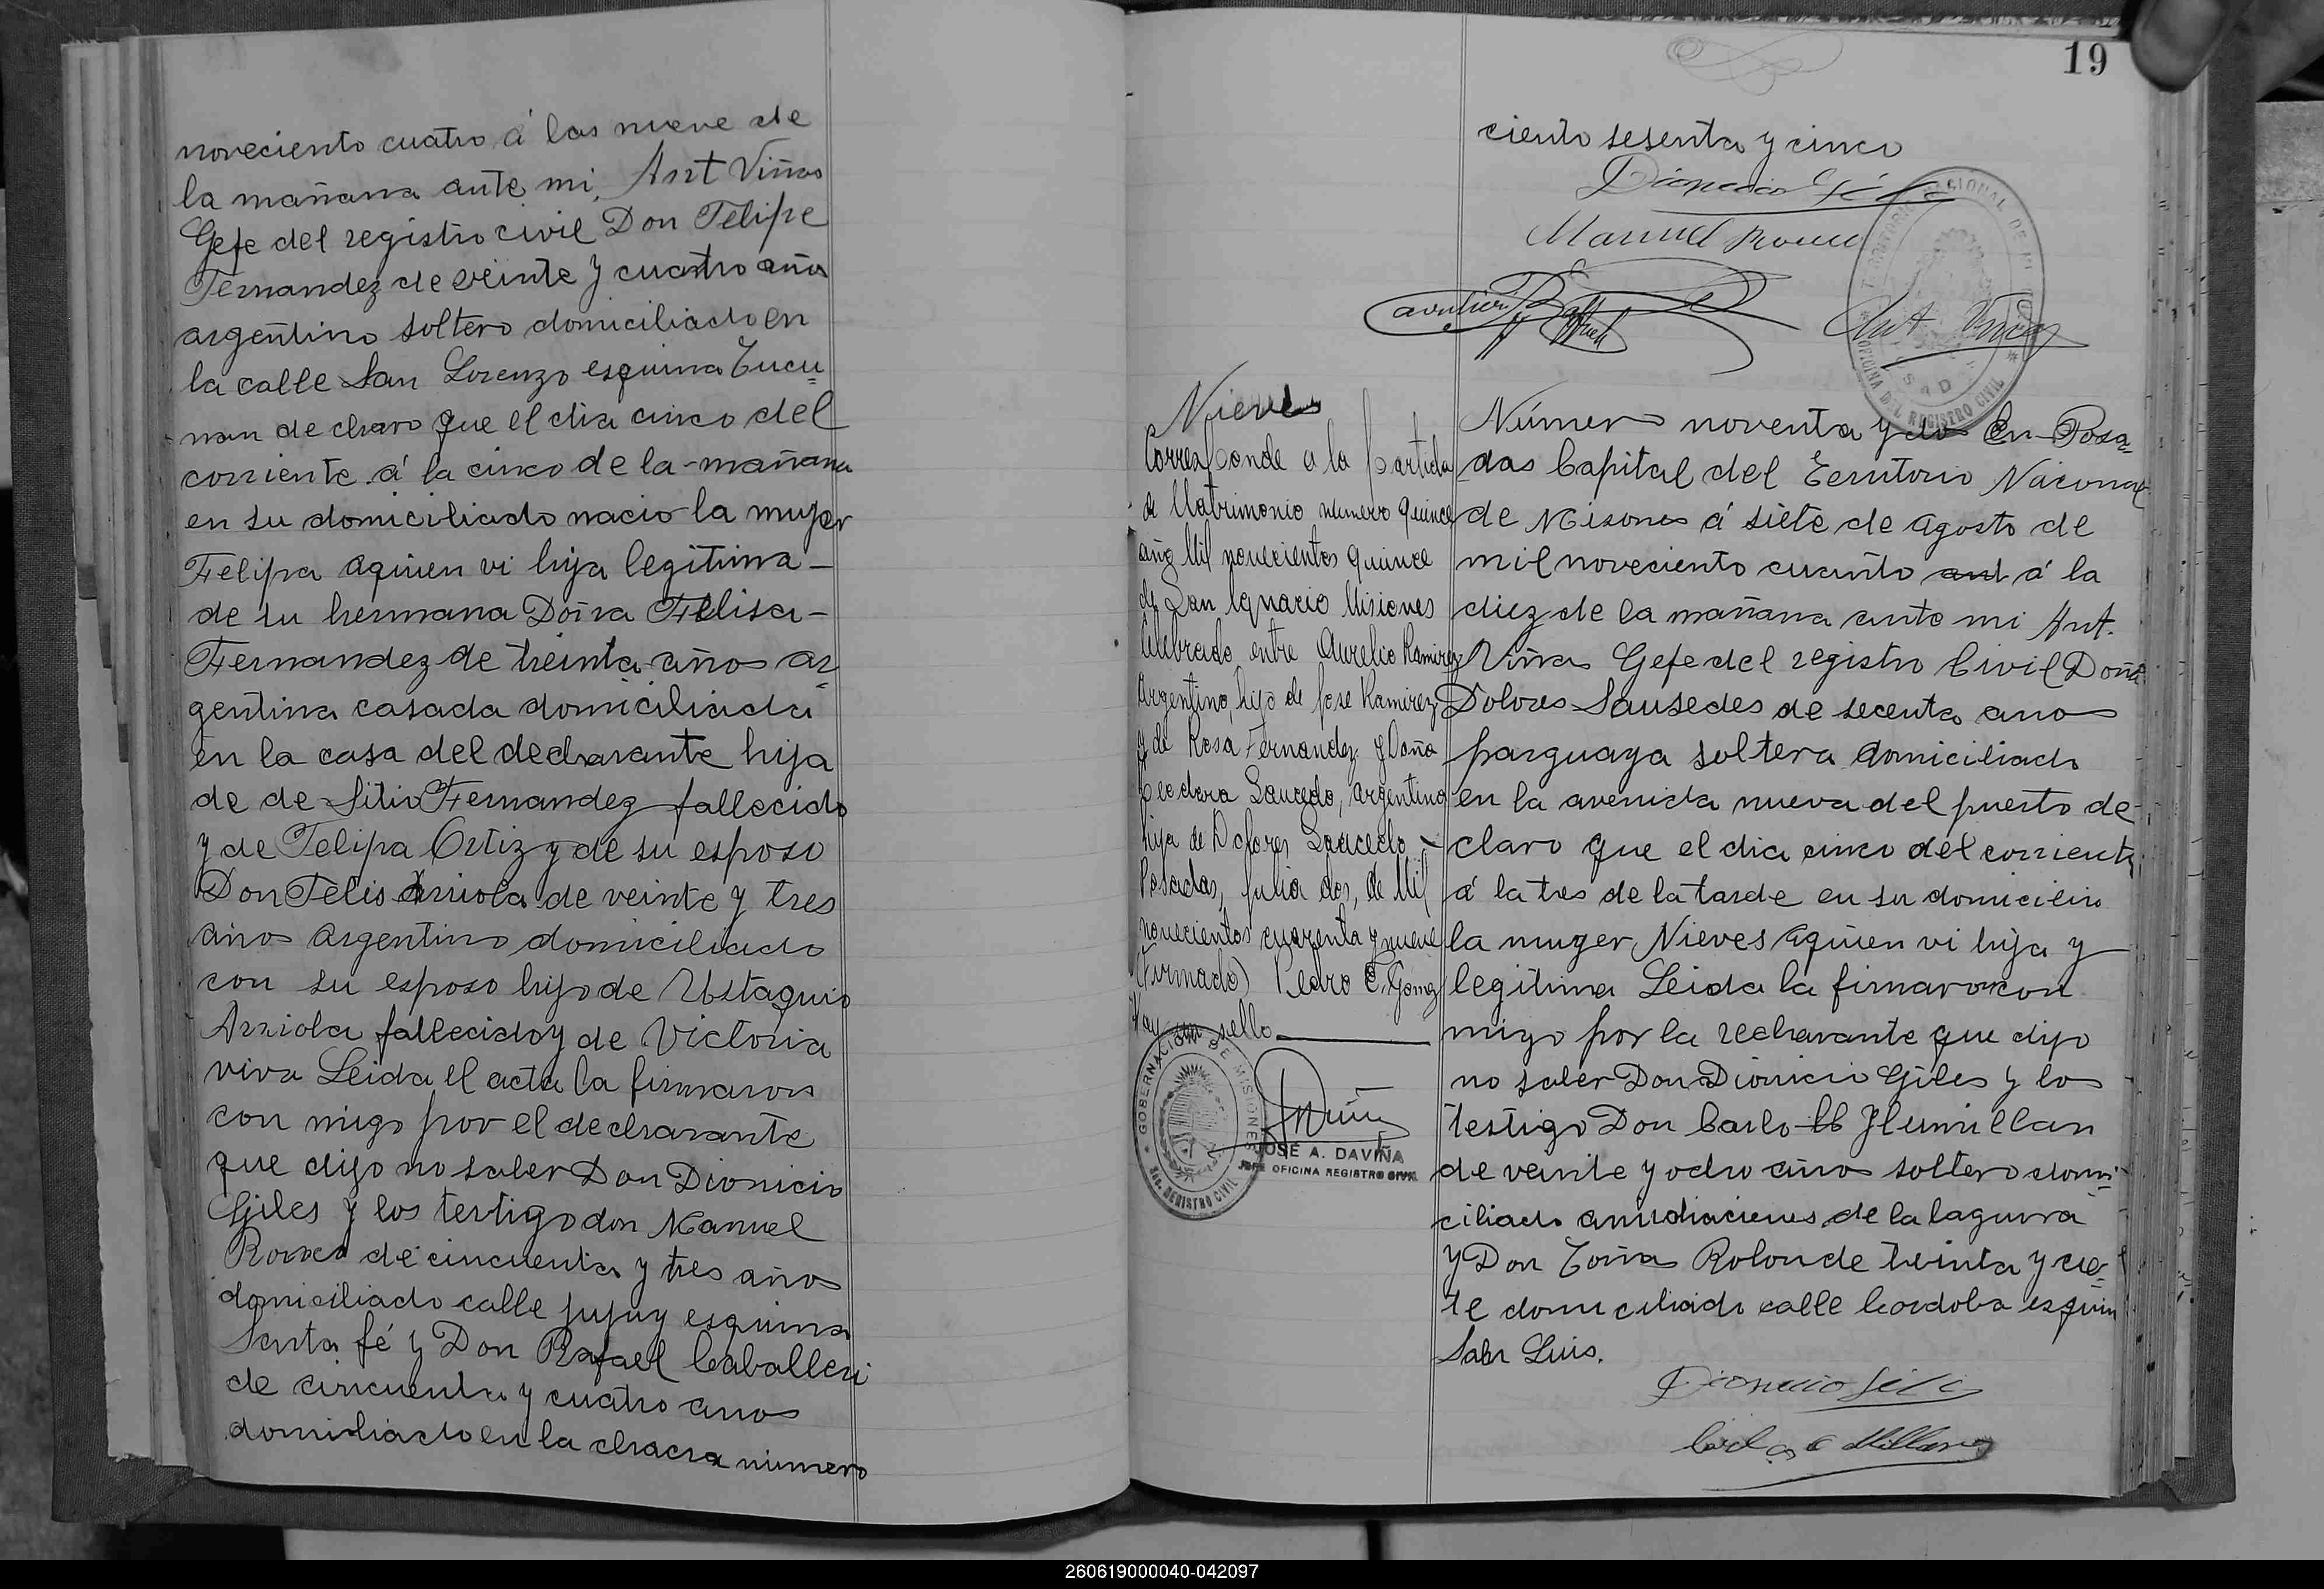 noveciento cuatro á las nueve de
la mañana ante mi, Ant Viñas
Gefe del registro civil Don Felipe
Fernandez de veinte y cuatro años
argentino soltero domiciliado en
la calle San Lorenzo esquina Tucu=
man declaro que el dia cinco del
corriente á la cinco de la mañana
en su domiciliado nacio la mujer
Felipa aquien vi hija legitima
de su hermana Doña Felisa
Fernandez de treinta año ar
gentina casada domiciliada
en la casa del declarante hija
de de Fernandez fallecido
y de Felipa Ortiz y de su esposo
Don Felis Arriola de veinte y tres
año argentino domiciliado
con su esposo hijo de Ustaquio
Arriola fallecido y de Victoria
viva Leida el acta la firmaron
con migo por el declarante
que dijo no saber Don Dionicio
Giles y los testigo don Manuel
de cincuenta y tres años
domiciliado calle jujuy esquina
Santa fé y Don Rafael Caballeri
de cincuenta y cuatro anos
domiliado en la chacra numero
19
ciento sesenta y cinco
Dionicio Giles
Manuel
Ant Viñas
Nieves
Corresponde a la partida
de Matrimonio número quince
año Mil novecientos quince
de San Ignacio Misiones
Celebrado entre Aurelio Ramirez
Argentino, hijo de Jose Ramirez
y de Rosa Fernandez y Doña
Teodora Saucedo, argentina
hija de Dolores Saucedo -
Posadas, julio dos, de Mil
novecientos cuarenta y nueve
(Firmado) Pedro E. Gomez
Hay un sello
GOBERNACION DE MISIONES
REGISTRO CIVIL
JOSÉ A. DAVIÑA
JEFE OFICINA REGISTRO CIVIL
Número noventa y do En Posa
das Capital del Territorio Nacional
de Misones á siete de agosto de
mil noveciento cuanto ant á la
diez de la mañana ante mi Ant.
Viñas Gefe del registro Civil Doña
Dolores Sausedes de secenta ano
parguaya soltera domiciliado
en la avenida nueva del puerto de
claro que el dia cinco del corriente
á la tres de la tarde en su domicilio
la muger Nieves aquien vi hija y
legitima Leida la firmaron con
migo por la reclarante que dijo
no saber Don Dionicio Giles y lo
testigo Don Carlo
de veinte y ocho años soltero domi
ciliado de la laguna
y Don Rolon de treinta y cie
te domiciliado calle Cordoba esquin
San Luis.
Dionicio Giles
Carlos C Millan
260619000040-042097